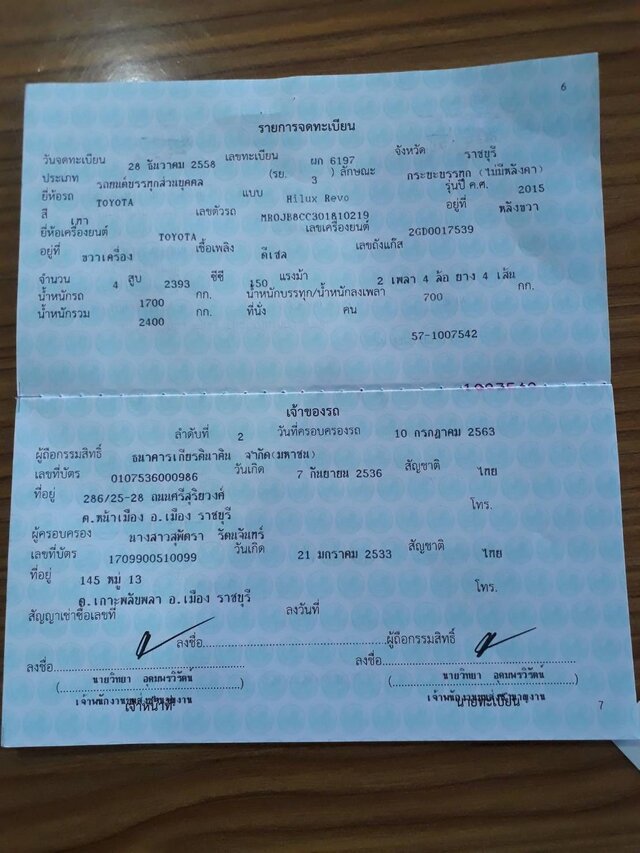 6
รายการจดทะเบียน
วันจดทะเบียน 28 ธันวาคม 2558 เลขทะเบียน ผก 6197 จังหวัด ราชบุรี
ประเภท รถยนต์บรรทุกส่วนบุคคล (รย. 3 ) ลักษณะ กระบะบรรทุก (ไม่มีหลังคา)
ยี่ห้อรถ TOYOTA แบบ Hilux Revo รุ่นปี ค.ศ. 2015
สี เทา เลขตัวรถ MR0JB8CC301810219 อยู่ที่ หลังขวา
ยี่ห้อเครื่องยนต์ TOYOTA เลขเครื่องยนต์ 2GD0017539
อยู่ที่ ขวาเครื่อง เชื้อเพลิง ดีเซล เลขถังแก๊ส
จำนวน 4 สูบ 2393 ซีซี 150 แรงม้า 2 เพลา 4 ล้อ ยาง 4 เส้น
น้ำหนักรถ 1700 กก. น้ำหนักบรรทุก/น้ำหนักลงเพลา 700 กก.
น้ำหนักรวม 2400 กก. ที่นั่ง คน
57-1007542
เจ้าของรถ
ลำดับที่ 2 วันที่ครอบครองรถ 10 กรกฎาคม 2563
ผู้ถือกรรมสิทธิ์ ธนาคารเกียรตินาคิน จำกัด(มหาชน)
เลขที่บัตร 0107536000986 วันเกิด 7 กันยายน 2536 สัญชาติ ไทย
ที่อยู่ 286/25-28 ถนนศรีสุริยวงศ์
ต.หน้าเมือง อ.เมือง ราชบุรี โทร.
ผู้ครอบครอง นางสาวสุพัตรา รัตนจันทร์
เลขที่บัตร 1709900510099 วันเกิด 21 มกราคม 2533 สัญชาติ ไทย
ที่อยู่ 145 หมู่ 13 โทร.
ต.เกาะพลับพลา อ.เมือง ราชบุรี
สัญญาเช่าซื้อเลขที่ ลงวันที่
ลงชื่อ ผู้ถือกรรมสิทธิ์
ลงชื่อ ลงชื่อ
( นายวิทยา อุดมพรวิรัตน์ ) ( นายวิทยา อุดมพรวิรัตน์ )
เจ้าหน้าที่ นายทะเบียน
7